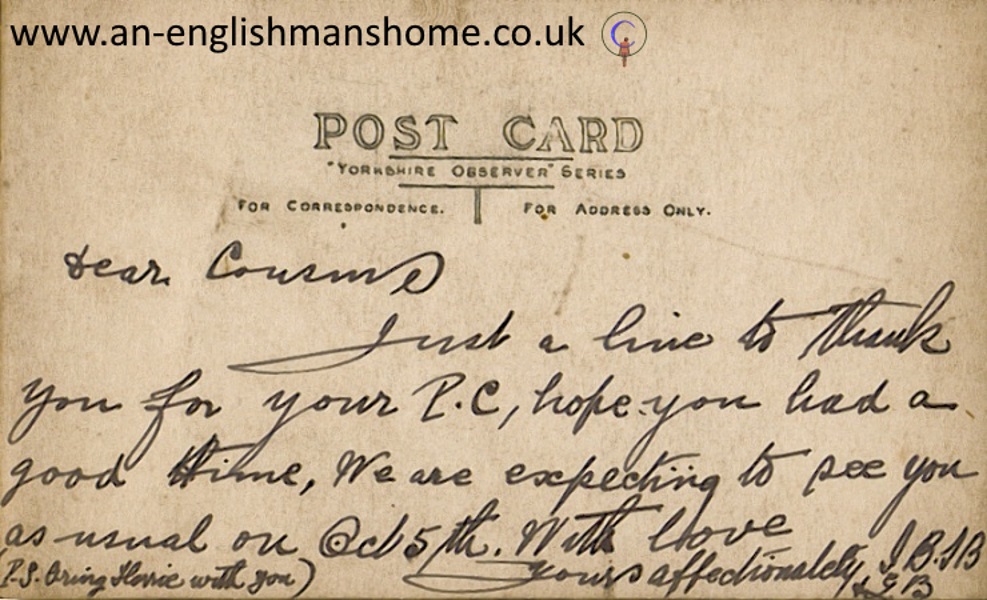 www.an-englishmanshome.co.uk
POST CARD
"YORKSHIRE OBSERVER" SERIES
FOR CORRESPONDENCE. FOR ADDRESS ONLY.
Dear Cousins
Just a line to thank
you for your P.C, hope you had a
good time, We are expecting to see you
as usual on Oct 5th. With love
yours affectionately J.B. J B
& G B
(P.S. Bring Florrie with you)